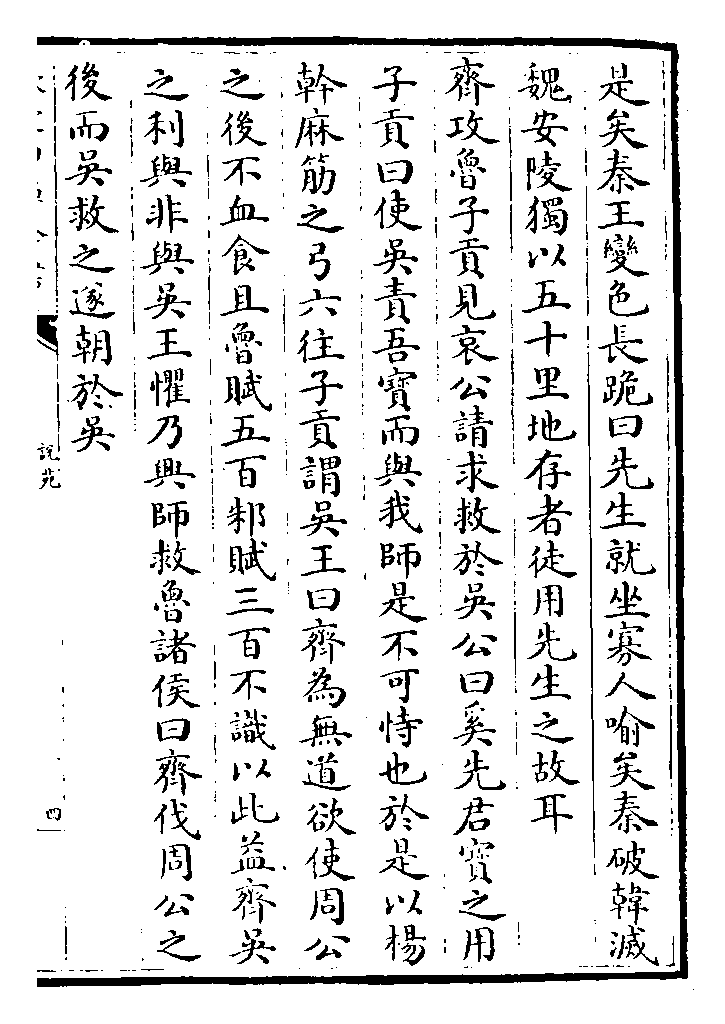 是矣秦王變色長跪曰先生就坐寡人喻矣秦破韓滅
魏安陵獨以五十里地存者徒用先生之故耳
齊攻魯子貢見哀公請求救於吳公曰奚先君寶之用
子貢曰使吳責吾寶而與我師是不可恃也於是以楊
幹麻筋之弓六往子貢謂吳王曰齊為無道欲使周公
之後不血食且魯賦五百邾賦三百不識以此益齊吳
之利與非與吳王懼乃興師救魯諸侯曰齊伐周公之
後而吳救之遂朝於吳
說苑
四